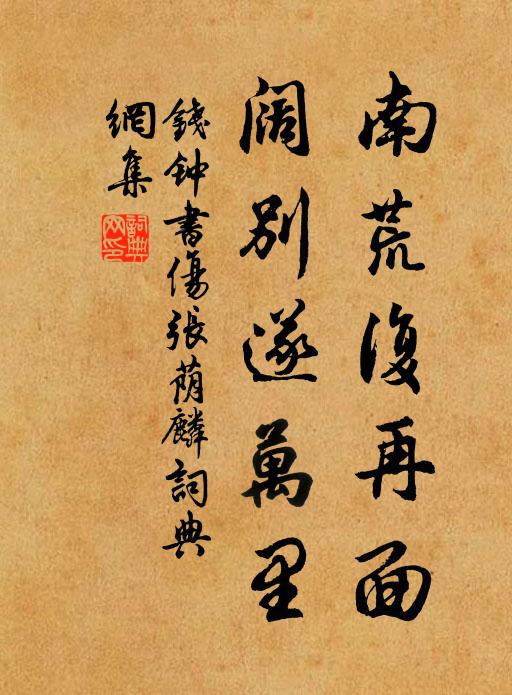 南荒復再面
阔別遂萬里
錢钟書傷張荫麟詞典
網集
詞典
网印